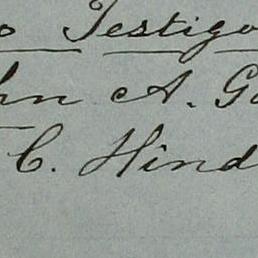 o Testigo
hn A. G
C. Hind